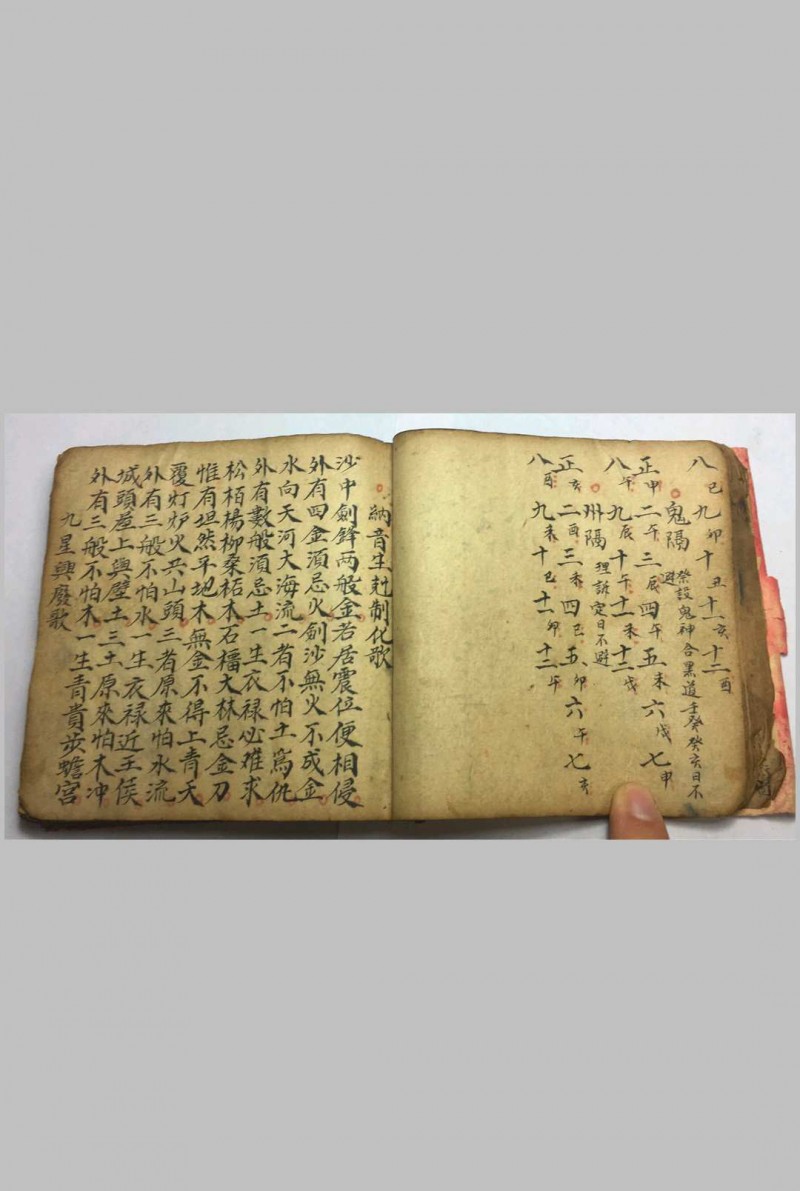 八巳九卯十丑十一亥十二酉
鬼隔 祭設鬼神合黑道壬癸癸亥日不避
正申二午三辰四午五未六戌七申
八午九辰十午十一未十二戌
州隔 理訴定日不避
正亥二酉三未四巳五卯六午七亥
八酉九未十巳十一卯十二午
納音生尅制化歌
沙中劍鋒兩般金若居震位便相侵
外有四金須忌火劍沙無火不成金
水向天河大海流二者不怕土為仇
外有數般須忌土一生衣禄必难求
松栢楊柳桑柘木石榴大林忌金刀
惟有坦然平地木無金不得上青天
覆灯炉火共山頭三者原來怕水流
外有三般不怕水一生衣禄近王侯
城頭屋上與壁土三土原來怕木冲
外有三般不怕木一生青貴步蟾宮
九星興廢歌